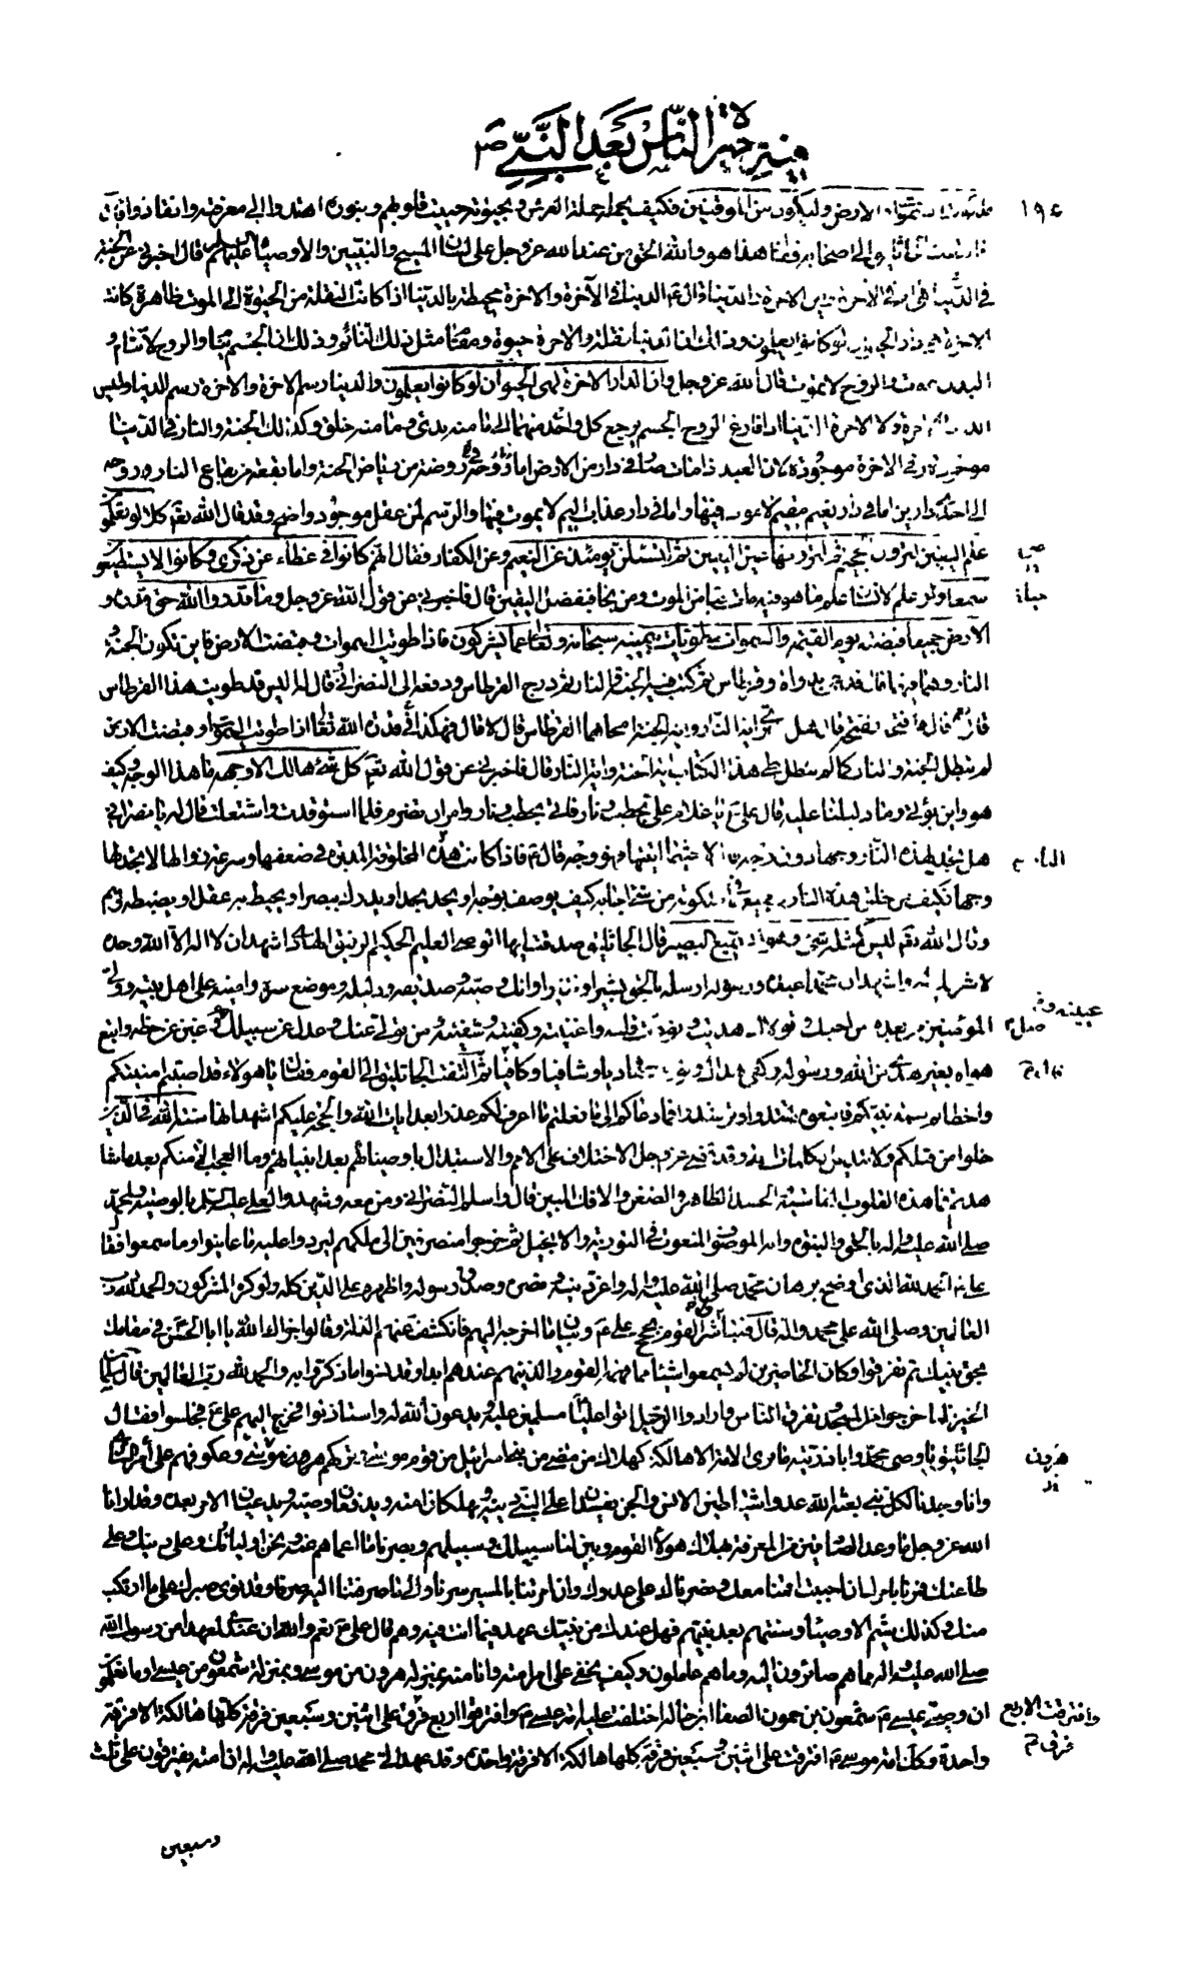 فيه خير الناس بعد النبي ص
١٩٤
السموات والارض وليكون من الموقنين فكيف يحمل حملة العرش الله وبحيوته حييت قلوبهم وبنوره اهتدوا الى معرفته
الى اصحابه فقال هذا هو والله الحق من عند الله عز وجل على لسان المسيح والنبيين والاوصياء عليهم السلم قال اخبرني عن الجنة
في الدنيا هي ام في الاخرة واين الاخرة والدنيا قال ع الدنيا في الآخرة والاخرة محيطة بالدنيا اذا كانت النقلة من الحيوة الى الموت ظاهرة كانت
الاخرة هي دار الحيوان لو كانوا يعلمون وذلك ان الدنيا نقلة والاخرة حيوة ومقام مثل ذلك النائم وذلك ان الجسم ينام والروح لا تنام و
البدن يموت والروح لا يموت قال الله عز وجل وان الدار الاخرة لهي الحيوان لو كانوا يعلمون والدنيا رسم الاخرة والاخرة رسم الدنيا وليس
الدنيا الاخرة ولا الاخرة الدنيا اذا فارق الروح الجسم يرجع كل واحد منهما الى ما منه بدئ وما منه خلق وكذلك الجنة والنار في الدنيا
موجودة وفي الاخرة موجودة لان العبد اذا مات صار في دار من الارض اما روضة من رياض الجنة واما بقعة من بقاع النار وروحه
الى احد دارين اما في دار نعيم مقيم لا موت فيها واما في دار عذاب اليم لا يموت فيها والرسم لمن عقل موجود واضح وقد قال الله تعم كلا لو تعلمون
علم اليقين لترون الجحيم ثم لترونها عين اليقين ثم لتسئلن يومئذ عن النعيم وعن الكفار فقال انهم كانوا في غطاء عن ذكري وكانوا لا يستطيعون
سمعا ولو علم الانسان علم ما هو فيه مات خوفا من الموت ومن نجا فبفضل اليقين قال فاخبرني عن قول الله عز وجل وما قدروا الله حق قدره و
الارض جميعا قبضته يوم القيمة والسموات مطويات بيمينه سبحانه وتعالى عما يشركون فاذا طويت السموات وقبضت الارض فاين تكون الجنة و
النار وهما فيهما قال فدعا بدواة وقرطاس ثم كتب فيه الجنة والنار ثم درج القرطاس ودفعه الى النصراني قال له اليس قد طويت هذا القرطاس
قال نعم قال فافتحه ففتحه قال هل ترى اية النار واية الجنة امحاهما القرطاس قال لا قال فهكذا في قدرة الله تعالى اذا طويت السموات وقبضت الارض
لم تبطل الجنة والنار كما لم تبطل طي هذا الكتاب اية الجنة واية النار قال فاخبرني عن قول الله تعم كل شئ هالك الا وجهه ما هذا الوجه وكيف
هو واين يؤتى وما دليلنا عليه قال علي ع يا غلام علي بحطب ونار فاتي بحطب ونار وامر ان تضرم فلما استوقدت واشتعلت قال له يا نصراني
هل تجد لهذه النار وجها دون وجه قال لا حيثما اتيتها فهو وجه قال ع فاذا كانت هذه النار المخلوقة المدبرة في ضعفها وسرعة زوالها لا تجد لها
وجها فكيف من خلق هذه النار وجميع ما في ملكوته من شئ اجابه كيف يوصف بوجه او يحد بحد او يدرك ببصر او يحيط به عقل او يضبطه وهم
وقال الله تعم ليس كمثله شئ وهو السميع البصير قال الجاثليق صدقت ايها الوصي العليم الحكيم الرفيق الهادي اشهد ان لا اله الا الله وحده
لا شريك له واشهد ان محمدا عبده ورسوله ارسله بالحق بشيرا ونذيرا وانك وصيه وصديقه ودليله وموضع سره وامينه على اهل بيته وولي
المؤمنين من بعده من احبك وتولاك هديته ونورت قلبه واغنيته وكفيته وشفيته ومن تولى عنك وعدل عن سبيلك غبن عن حظه واتبع
هواه بغير هدى من الله ورسوله وكفى هداك ونورك هاديا وشافيا وكافيا ثم التفت الجاثليق الى القوم فقال يا هؤلاء قد اصبتم امنيتكم
واخطأتم سنة نبيكم فاتبعوه تهتدوا وترشدوا فما دعاكم الى ما فعلتم ما اعرف لكم عذرا بعد ايات الله والحجة عليكم اشهد انها سنة الله في الذين
خلوا من قبلكم ولا تبديل لكلمات الله وقد قضى عز وجل الاختلاف على الامم والاستبدال باوصيائهم بعد انبيائهم وما العجب الا منكم بعد ما شا
هدتم فما هذه القلوب القاسية الحسد الظاهر والضغن والافك المبين قال واسلم النصراني ومن معه وشهدوا لعلي عليه السلم بالوصية ولمحمد
صلى الله عليه واله بالحق والنبوة وانه الموصوف المنعوت في التورية والانجيل ثم خرجوا منصرفين الى ملكهم ليردوا عليه ما عاينوا وما سمعوا فقال
علي ع الحمد لله الذي اوضح برهان محمد صلى الله عليه واله واعز دينه ونصره وصدق رسوله واظهره على الدين كله ولو كره المشركون والحمد لله رب
العالمين وصلى الله على محمد واله قال فتباشر القوم بحجج علي ع وبيان ما اخرجه اليهم فانكشفت عنهم الذلة وقالوا جزاك الله يا ابا الحسن في مقامك
بحق نبيك ثم تفرقوا وكان الحاضرين لم يسمعوا شيئا مما فهمه القوم والذين هم عندهم ابدا وقد نسوا ما ذكروا به والحمد لله رب العالمين قال سلمان
الخير فلما خرجوا من المسجد وتفرق الناس وارادوا الرحيل اتوا عليا ع مسلمين عليه ويدعون الله له واستأذنوا فخرج اليهم علي ع فجلسوا فقال
الجاثليق يا وصي محمد وابا ذريته ما نرى الامة الا هالكة كهلاك من مضى من بني اسرائيل من قوم موسى وتركهم هرون وعكوفهم على امر السامري
وانا وجدنا لكل نبي بعثه الله عدوا شياطين الانس والجن يفسدان على النبي دينه ويهلكان امته ويدفعان وصيه ويدعيان الامر بعده وقد ارانا
الله عز وجل ما وعد الصادقين من المعرفة بهلاك هؤلاء القوم وبين لنا سبيلك وسبيلهم وبصرنا ما اعماهم عنه ونحن اولياؤك وعلى دينك وعلى
طاعتك فمرنا بامرك ان احببت اقمنا معك ونصرناك على عدوك وان امرتنا بالمسير سرنا والى ما صرفتنا اليه صرنا وقد نرى صبرك على ما ارتكب
منك وكذلك شيم الاوصياء وسنتهم بعد نبيهم فهل عندك من نبيك عهد فيما انت فيه وهم قال علي ع نعم والله ان عندي لعهدا من رسول الله
صلى الله عليه واله مما هم صائرون اليه وما هم عاملون وكيف يخفى علي امر امته وانا منه بمنزلة هرون من موسى وبمنزلة شمعون من عيسى اوما تعلمون
ان وصي عيسى ع شمعون بن حمون الصفا ابن خاله اختلفت عليه امة عيسى ع وافترقوا اربع فرق على اثنين وسبعين فرقة كلها هالكة الا فرقة
واحدة وكذلك امة موسى ع افترقت على اثنين وسبعين فرقة كلها هالكة الا فرقة واحدة وقد عهد الي محمد صلى الله عليه واله ان امته يفترقون على ثلث
هرون
وافترقت الاربع
فرق
وسبعين